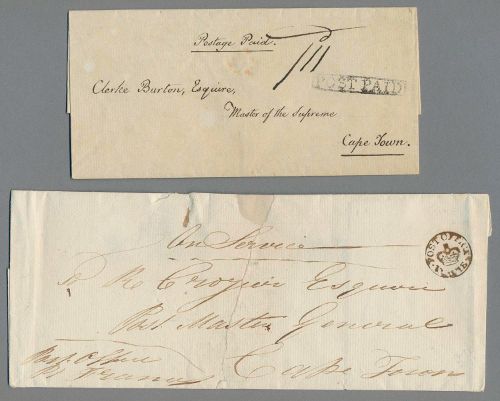 Postage Paid.
POST PAID
Clerke Burton, Esquire,
Master of the Supreme
Cape Town.
On Service
To R Crozier Esquire
Post Master General
Cape Town
Post Office
POST OFFICE